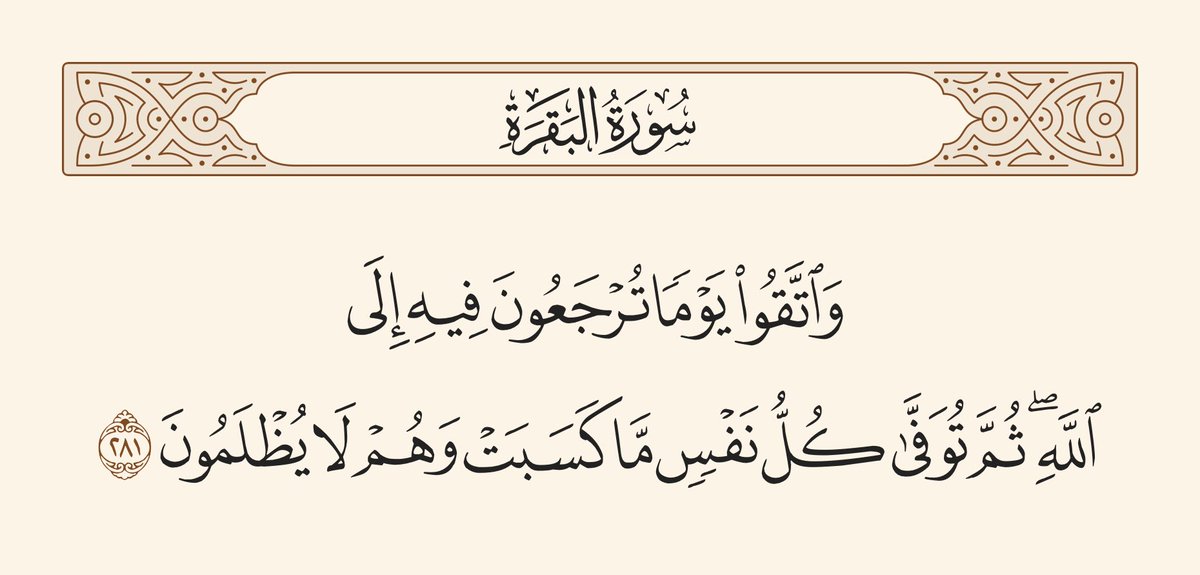 سُورَةُ البَقَرَةِ
وَٱتَّقُوا۟ يَوْمًا تُرْجَعُونَ فِيهِ إِلَى
ٱللَّهِ ۖ ثُمَّ تُوَفَّىٰ كُلُّ نَفْسٍ مَّا كَسَبَتْ وَهُمْ لَا يُظْلَمُونَ ٢٨١